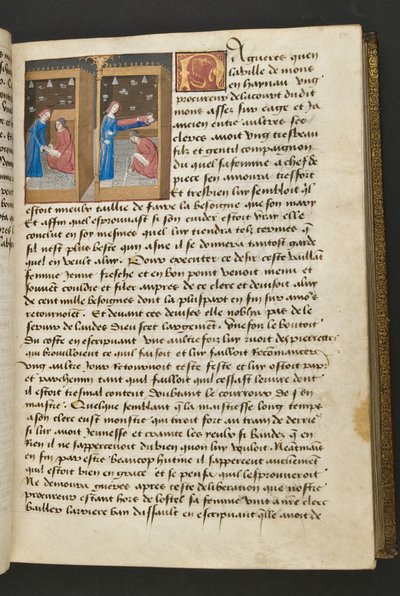 Naguères que en
la ville de mons
en haynau ung
procureur de la court du dit
mons assez sur eage et ja
ancien entre aultres ses
clercs avoit ung tresbeau
filz et gentil compaignon
du quel sa femme a chef de
piece s'en amoura tresfort
Et tresbien luy sembloit q'l
estoit mieulx taillie de faire la besongne que son mary
Et affin qu'el esprouvast si son cuider estoit vray elle
conclut en soy mesmes qu'el luy tiendra telz termes q'
s'il n'est plus beste qun asne il se donnera tantost garde
qu'el en veult a luy Pour executer ce desir ceste vaillant
femme jeune fresche et en bon point venoit menu et
souvent couldre et filer aupres de ce clerc et devisoit a luy
de cent mille besongnes dont la pluspart en fin sur amo's
retournoient Et devant ces devises elle n'oblya pas de le
servir de laudes Une foiz le boutoit
Du coste en escripvant une aultre foiz luy ruoit des pierrettes
qui brouilloient ce qu'il faisoit et luy failloit recommancer
Ung aultre jour retournoit ceste feste et luy ostoit papier
et parchemin tant qu'il failloit qu'il cessast l'euvre dont
il estoit tresmal content doubtant le courroux de son
maistre Quelque semblant q' la maistresse long temps
a son clerc eust monstre qui tiroit fort au train de derrie'
si luy avoit jeunesse et crainte les yeulx si bandez q' en
rien il ne s'appercevoit du bien qu'on luy vouloit Neantmoins
en fin par estre beaucop hutine il s'apperceut aucunement
qu'il estoit bien en grace et se pensa qu'il l'esprouveroit
Ne demoura gueres apres ceste deliberation que nostre
procureur estant hors de l'ostel sa femme vint a nre clerc
bailler l'arriere ban d'assault en escripvant qu'elle avoit de